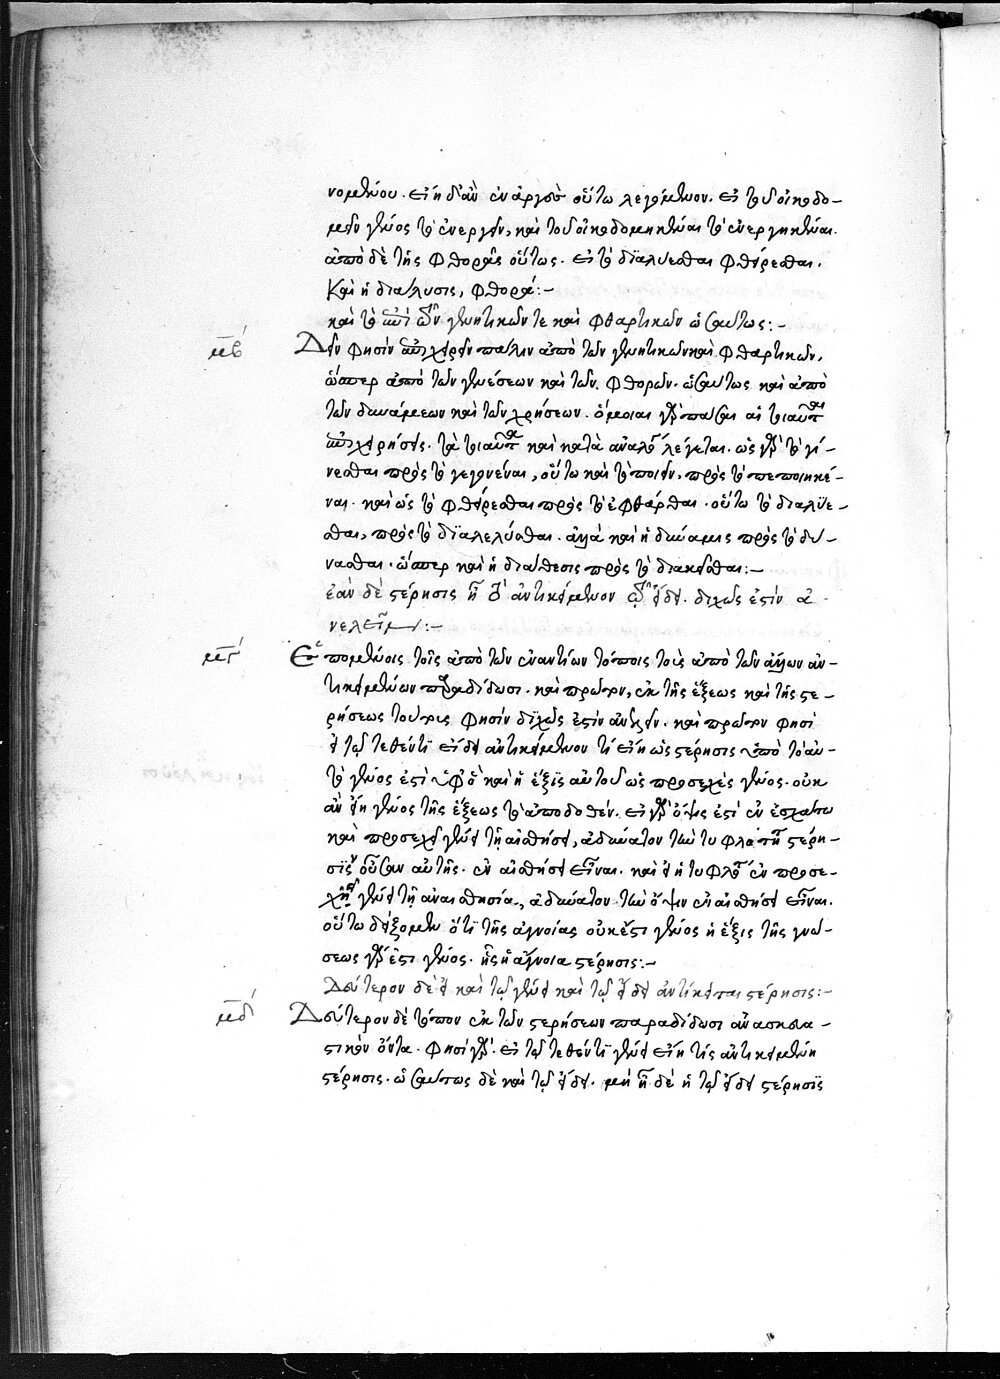 νομένου. εἴη δ' ἂν ἐναργὲς οὕτω λεγόμενον. εἰ τοῦ οἰκοδο-
μεῖν γένος τὸ ἐνεργεῖν, καὶ τοῦ οἰκοδομηκέναι τὸ ἐνεργηκέναι.
ἀπὸ δὲ τῆς φθορᾶς οὕτως. εἰ τὸ διαλύεσθαι φθείρεσθαι.
καὶ ἡ διάλυσις, φθορά:-
καὶ τὸ ἐπὶ τῶν γενητικῶν τε καὶ φθαρτικῶν ὡσαύτως:-
μβ Δεῖν φησὶν ἐπιχειρεῖν πάλιν ἀπὸ τῶν γενητικῶν καὶ φθαρτικῶν,
ὥσπερ ἀπὸ τῶν γενέσεων καὶ τῶν φθορῶν. ὡσαύτως καὶ ἀπὸ
τῶν δυνάμεων καὶ τῶν χρήσεων. ὅμοιαι γὰρ πᾶσαι αἱ τοιαῦται
ἐπιχειρήσεις. τὰ τοιαῦτα καὶ κατὰ ἀναλογίαν λέγεται. ὡς γὰρ τὸ γί-
νεσθαι πρὸς τὸ γεγονέναι, οὕτω καὶ τὸ ποιεῖν, πρὸς τὸ πεποιηκέ-
ναι. καὶ ὡς τὸ φθείρεσθαι πρὸς τὸ ἐφθάρθαι. οὕτω τὸ διαλύε-
σθαι, πρὸς τὸ διαλελύσθαι. ἀλλὰ καὶ ἡ δύναμις πρὸς τὸ δύ-
νασθαι. ὥσπερ καὶ ἡ διάθεσις πρὸς τὸ διακεῖσθαι:-
ἐὰν δὲ στέρησις ᾖ τὸ ἀντικείμενον τῷ εἴδει. διχῶς ἐστὶν ἀ-
νελεῖν:-
μγ Ἑπομένοις τοῖς ἀπὸ τῶν ἐναντίων τόποις τοὺς ἀπὸ τῶν ἄλλων ἀν-
τικειμένων παραδίδωσι. καὶ πρῶτον, ἐκ τῆς ἕξεως καὶ τῆς στε-
ρήσεως τούτοις φησὶν διχῶς ἐστὶν ἀνελεῖν. καὶ πρῶτον φησὶ
εἰ τῷ τεθέντι εἴδει ἀντικείμενον τι εἴη ὡς στέρησις ὑπὸ τὸ αὐ-
τὸ γένος ἐστὶ ὑφ' ὃ καὶ ἡ ἕξις αὐτοῦ ὡς προσεχὲς γένος. οὐκ
ἂν εἴη γένος τῆς ἕξεως τὸ ἀποδοθέν. εἰ γὰρ ὄψις ἐστὶ ἐν ἐσχάτῳ
καὶ προσεχεῖ γένει τῇ αἰσθήσει, ἀδύνατον τὴν τυφλότητα στέρη-
σιν οὖσαν αὐτῆς. ἐν αἰσθήσει εἶναι. καὶ εἰ ἡ τυφλότης ἐν προσε-
χεῖ γένει τῇ ἀναισθησίᾳ, ἀδύνατον τὴν ὄψιν ἐν αἰσθήσει εἶναι.
οὕτω δείξομεν ὅτι τῆς ἀγνοίας οὐκ ἔστι γένος ἡ ἕξις τῆς γνώ-
σεως γὰρ ἐστὶ γένος. ἧς ἡ ἄγνοια στέρησις:-
Δεύτερον δὲ εἰ καὶ τῷ γένει καὶ τῷ εἴδει ἀντίκειται στέρησις:-
μδ Δεύτερον δὲ τόπον ἐκ τῶν στερήσεων παραδίδωσι ἀνασκευα-
στικὸν ὄντα. φησὶ γὰρ. εἰ τῷ τεθέντι γένει εἴη τις ἀντικειμένη
στέρησις. ὡσαύτως δὲ καὶ τῷ εἴδει. μὴ ᾖ δὲ ἡ τῷ εἴδει στέρησις